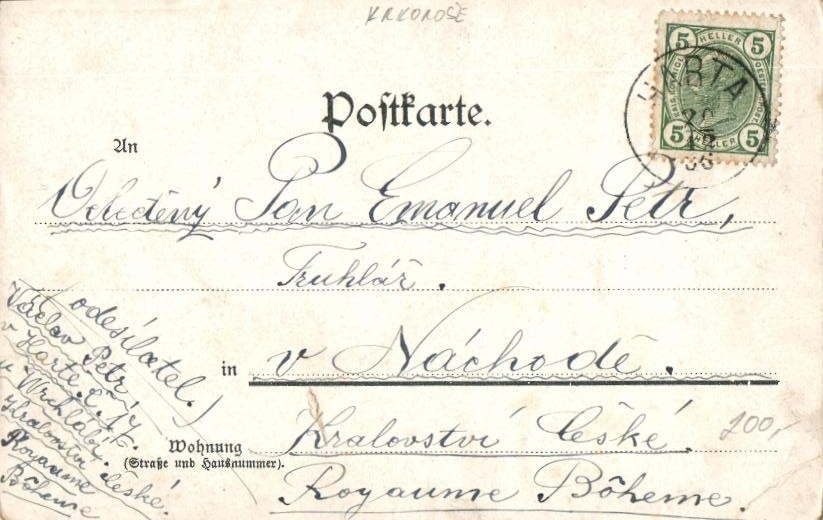 KRKONOŠE
Postkarte.
5 HELLER 5
5 HELLER 5
HARTA
An
Velectěný Pan Emanuel Petr,
Truhlář.
in v Náchodě.
Království České.
Wohnung
(Straße und Hausnummer).
Royaume Bôheme.
200,-
odesílatel.)
Václav Petr
v Hartě č. 74
u Vrchlabí.
Království České!
Royaume
Bôheme